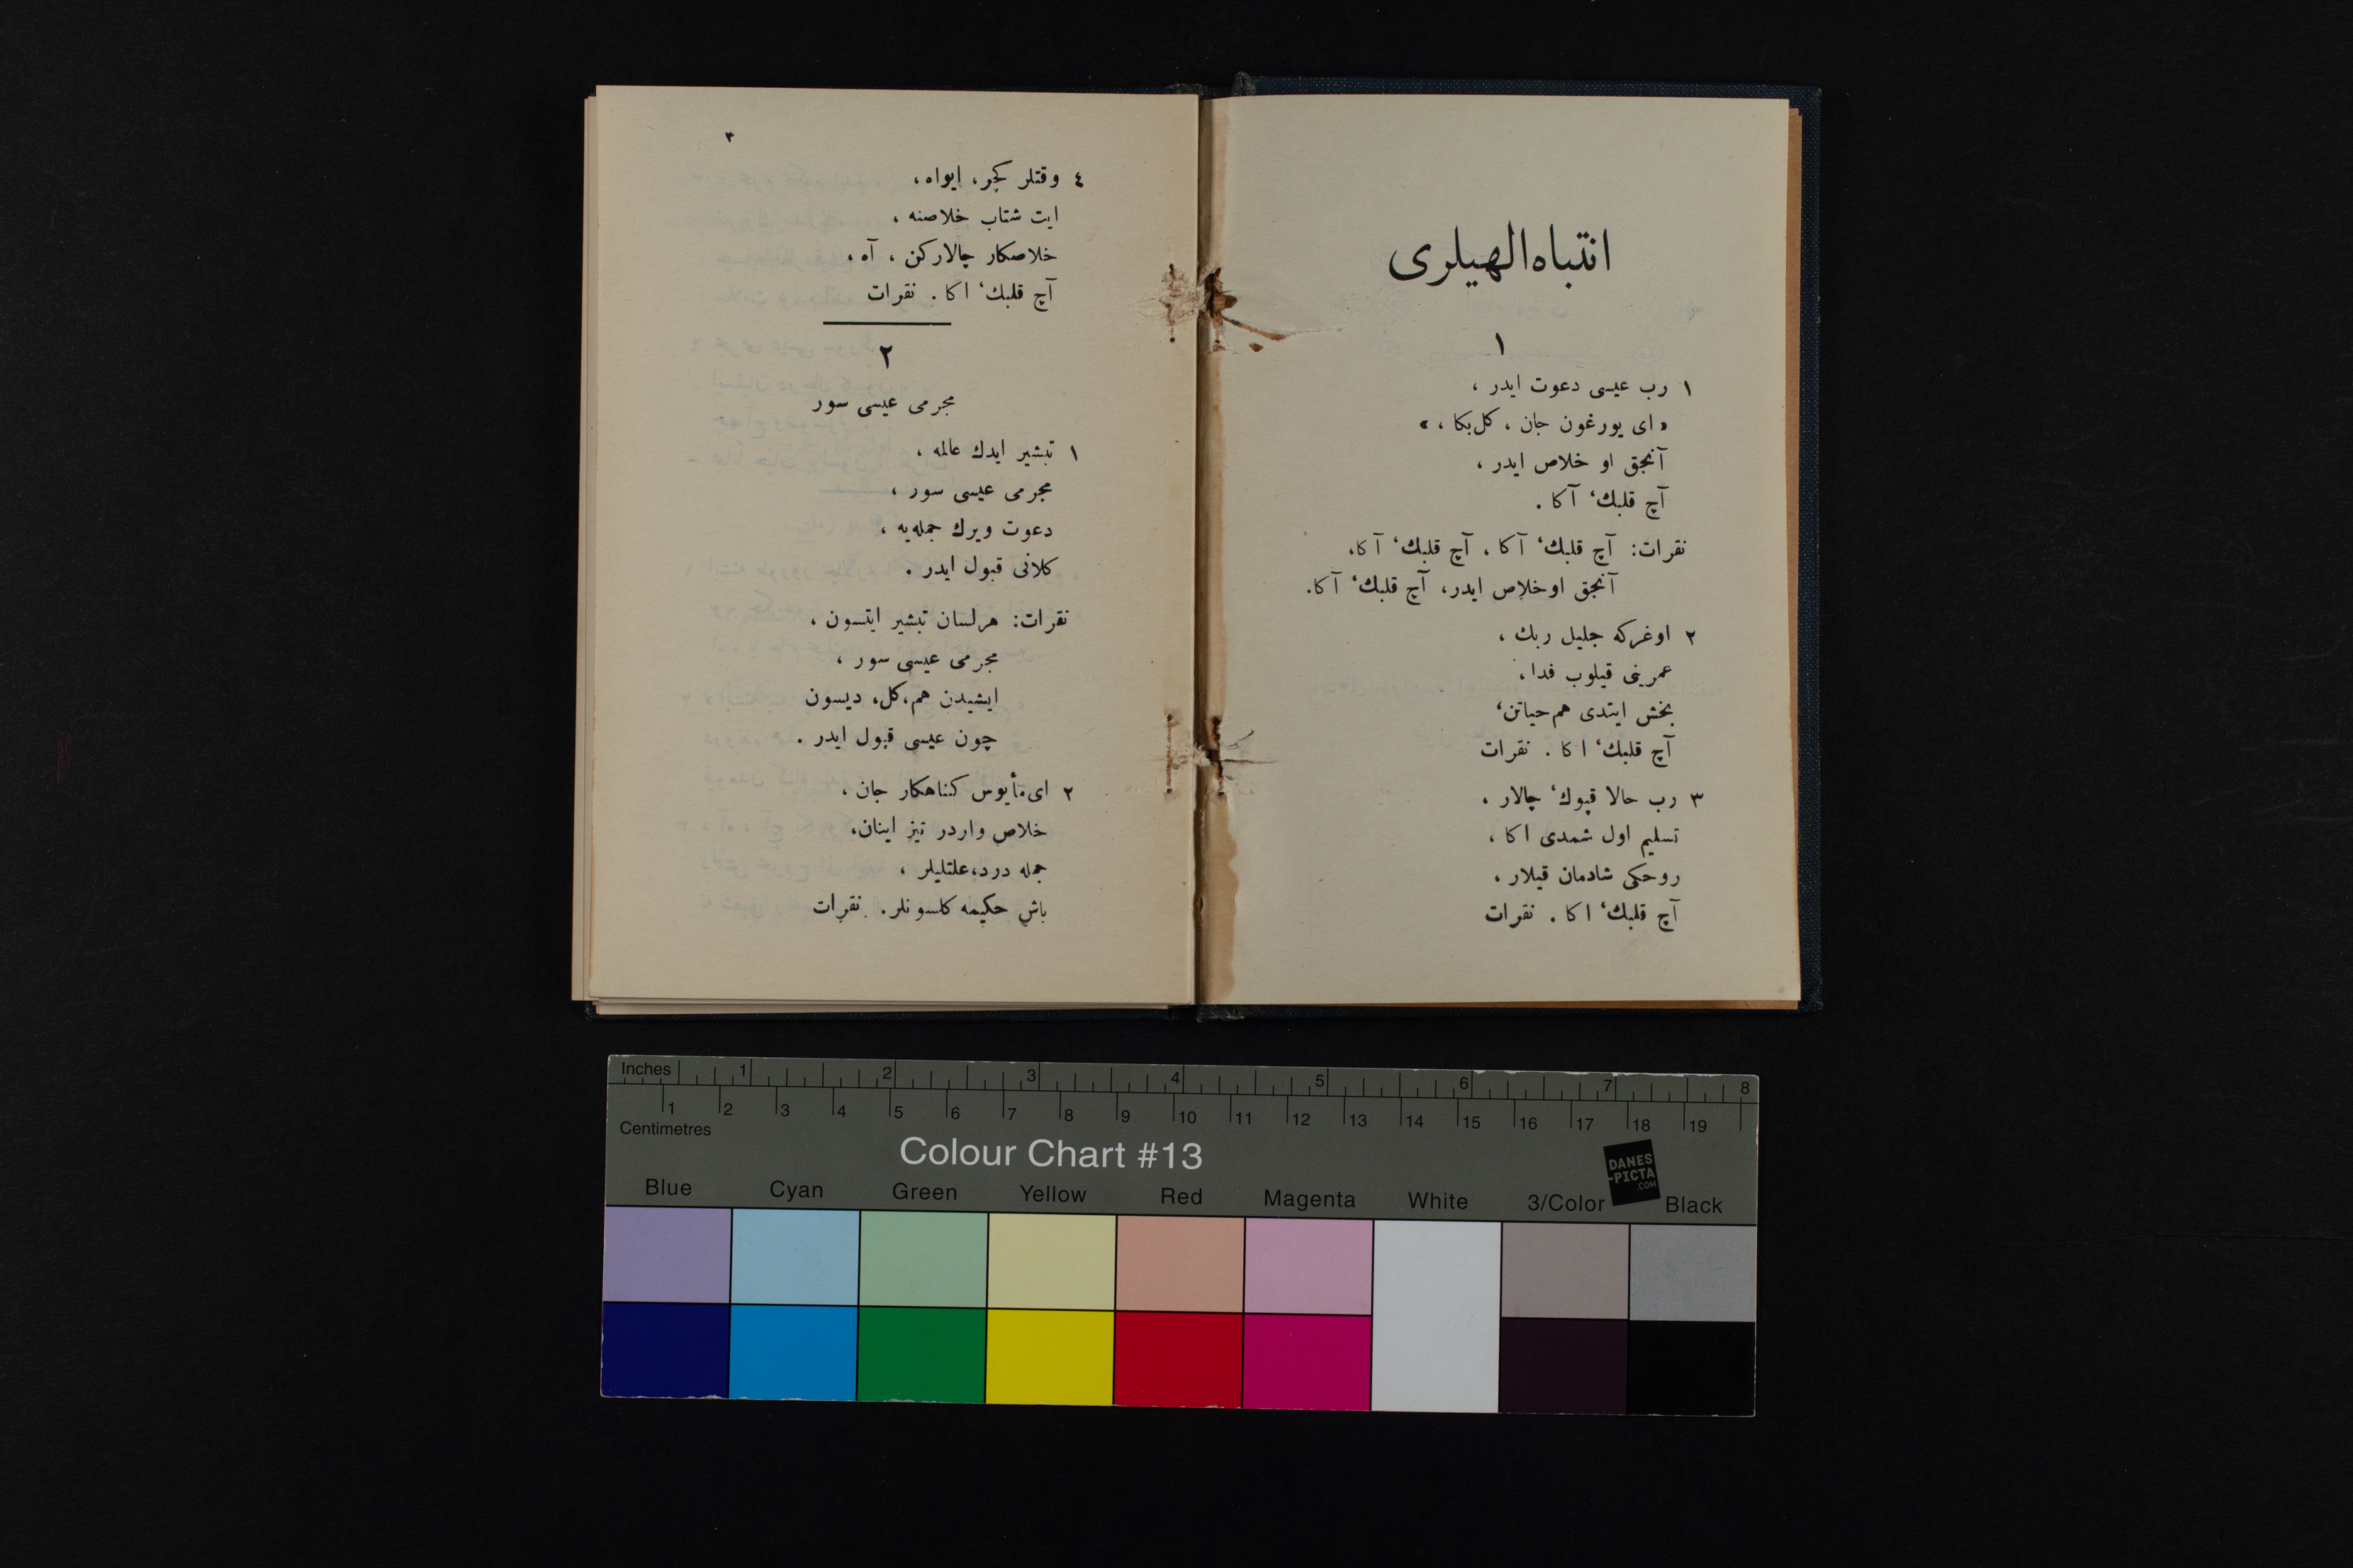 انتباه الهیلری
١
١ رب عیسی دعوت ایدر ،
« ای یورغون جان ، كل بكا ، »
آنجق او خلاص ایدر ،
آچ قلبك‘ آكا .
نقرات: آچ قلبك‘ آكا ، آچ قلبك‘ آكا،
آنجق اوخلاص ایدر، آچ قلبك‘ آكا.
٢ اوغركه جلیل ربك ،
عمرینی قیلوب فدا ،
بخش ایتدی هم حیاتن‘
آچ قلبك‘ اكا . نقرات
٣ رب حالا قپوك‘ چالار ،
تسلیم اول شمدی اكا ،
روحكی شادمان قیلار ،
آچ قلبك‘ اكا . نقرات
٣
٤ وقتلر كچر، ایواه ،
ایت شتاب خلاصنه ،
خلاصكار چالاركن ، آه ،
آچ قلبك‘ اكا . نقرات
٢
مجرمی عیسی سور
١ تبشیر ایدك عالمه ،
مجرمی عیسی سور ،
دعوت ویرك جمله‌یه ،
كلانی قبول ایدر .
نقرات: هرلسان تبشیر ایتسون ،
مجرمی عیسی سور ،
ایشیدن هم،كل، دیسون
چون عیسی قبول ایدر .
٢ ای مأیوس كناهكار جان ،
خلاص واردر تیز اینان،
جمله درد،علتلیلر ،
باش حكیمه كلسونلر. نقرات
Inches 1 2 3 4 5 6 7 8
1 2 3 4 5 6 7 8 9 10 11 12 13 14 15 16 17 18 19
Centimetres
Colour Chart #13
DANES
-PICTA
.COM
Blue Cyan Green Yellow Red Magenta White 3/Color Black